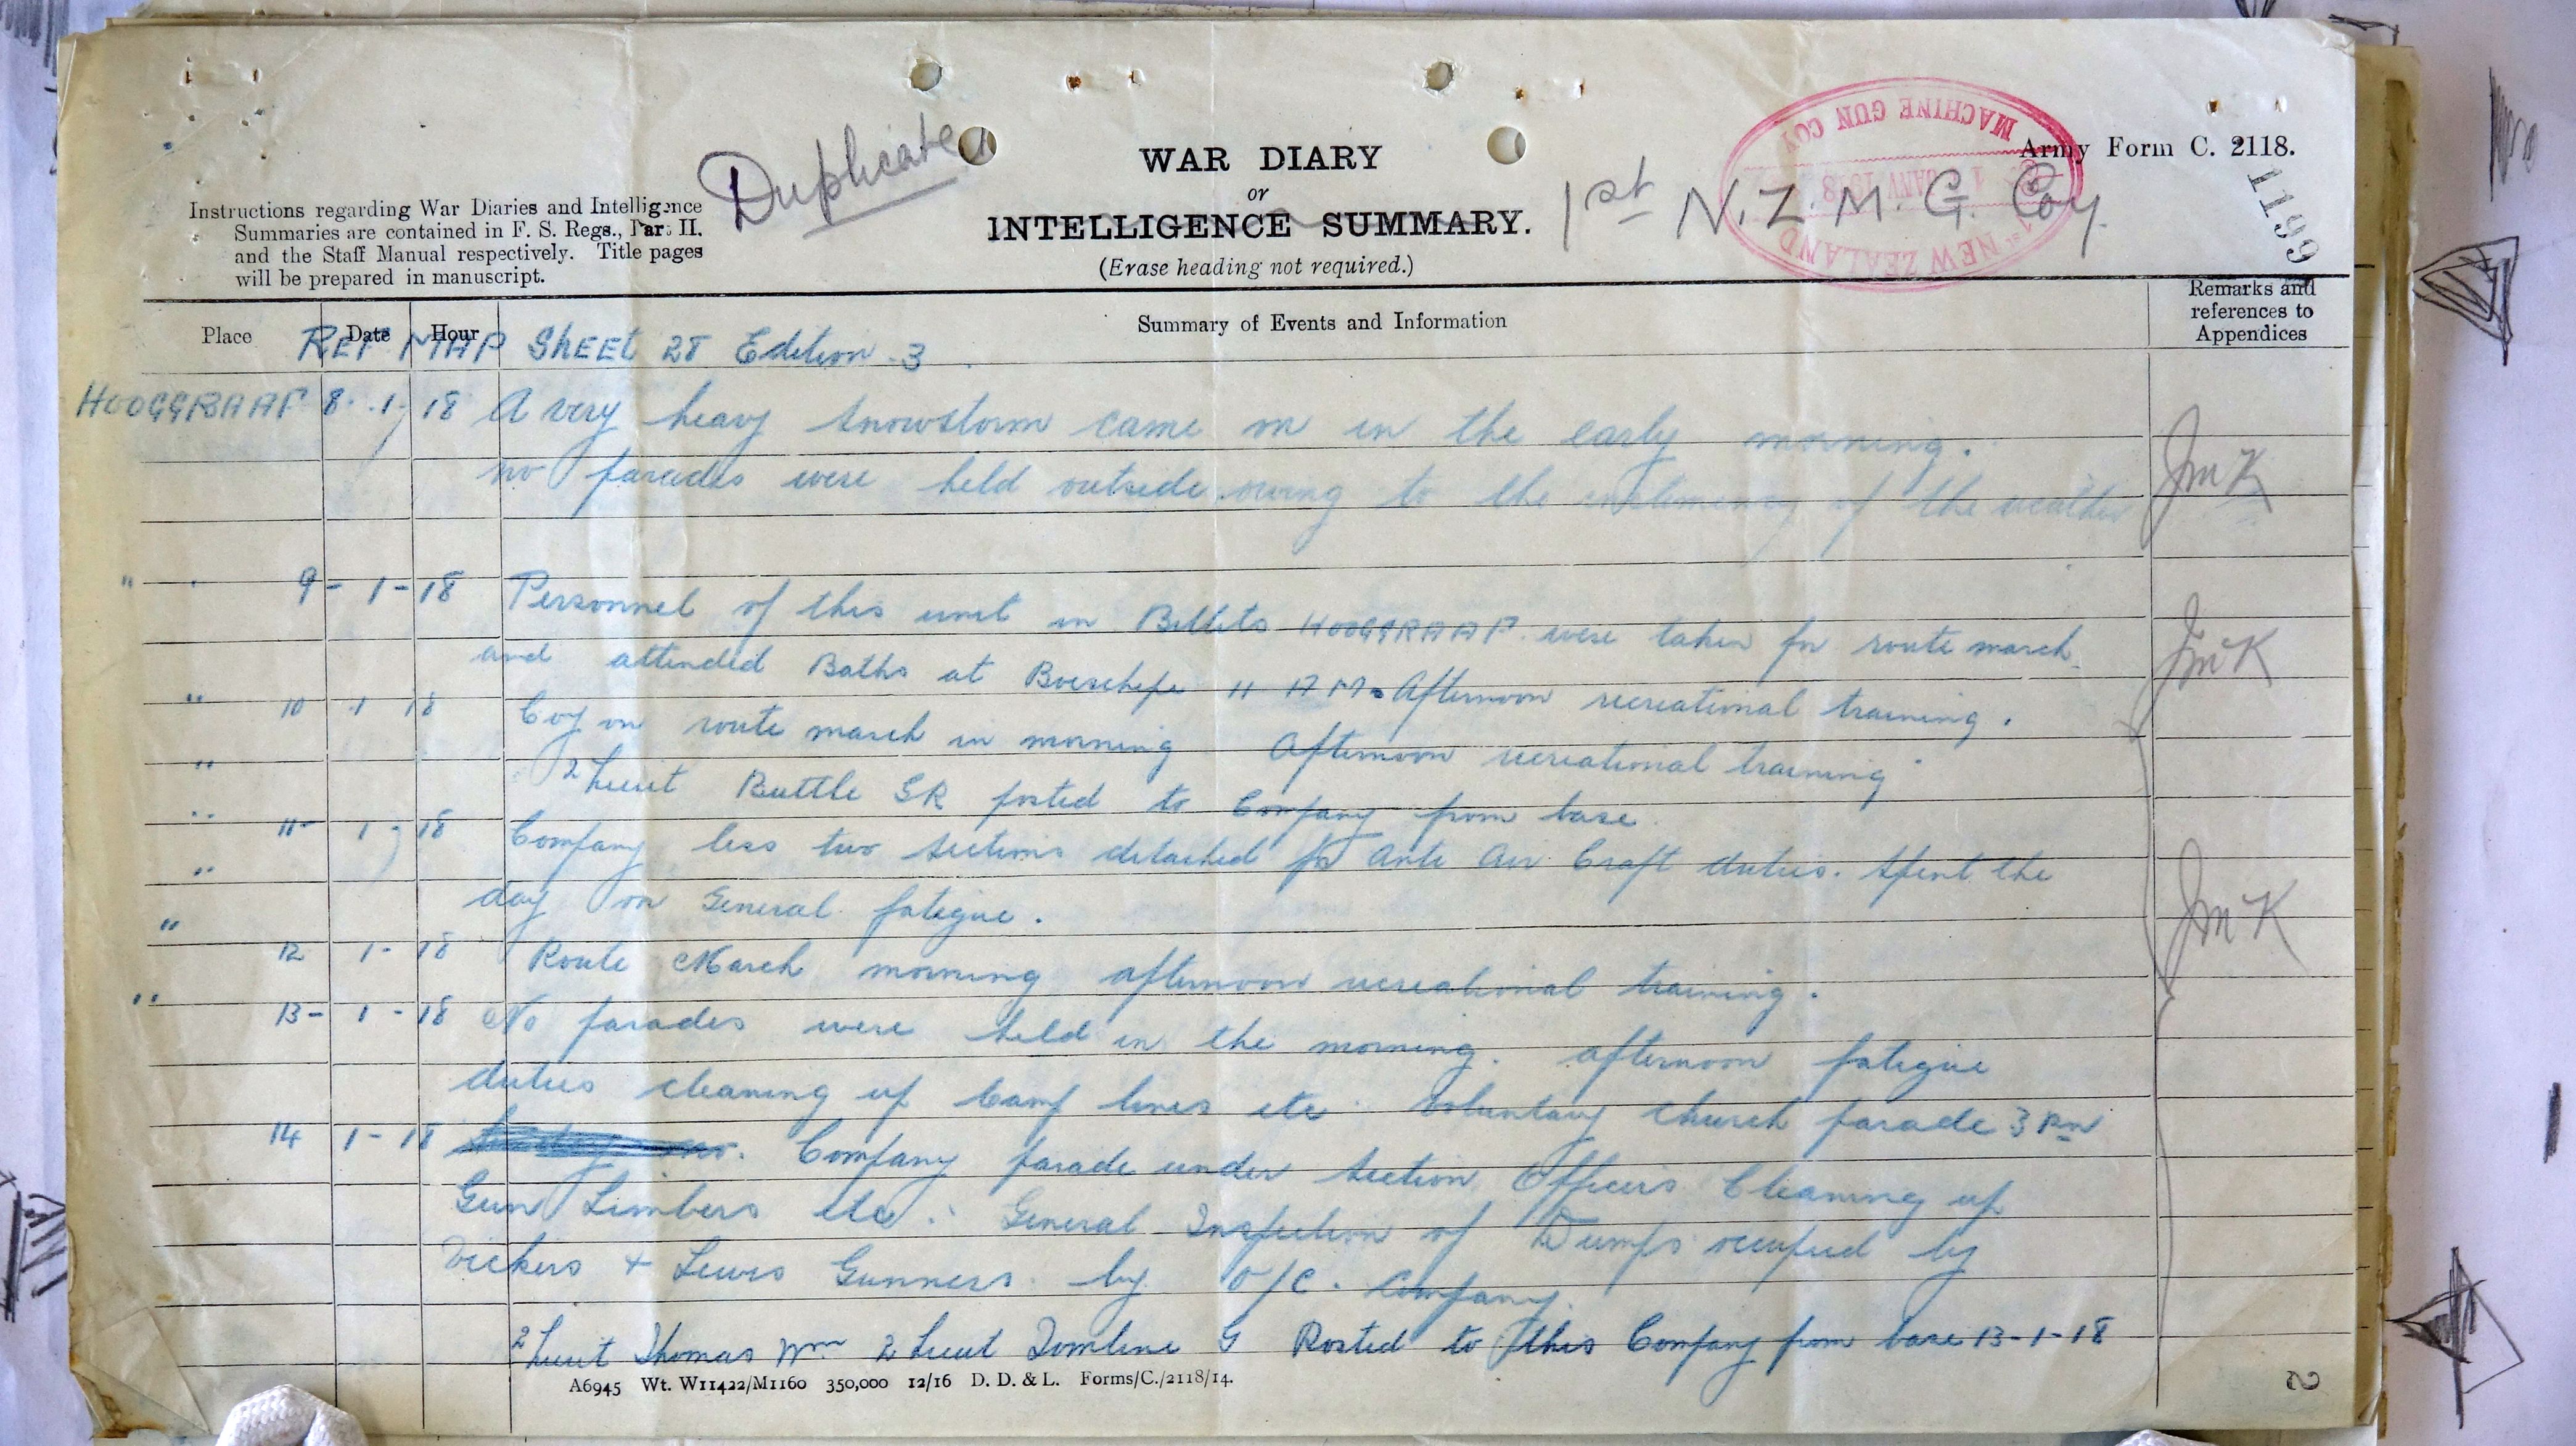 Duplicate
WAR DIARY
or
INTELLIGENCE SUMMARY.
(Erase heading not required.)
Army Form C. 2118.
1st N.Z. M. G. Coy.
1st NEW ZEALAND
1 JANV 1918
MACHINE GUN COY
1199
Instructions regarding War Diaries and Intelligence
Summaries are contained in F. S. Regs., Part II.
and the Staff Manual respectively. Title pages
will be prepared in manuscript.
Place Date Hour Summary of Events and Information Remarks and references to Appendices
REF MAP SHEET 28 Edition 3
HOOGGRAAF 8.1.18 A very heavy snowstorm came on in the early morning.
no parades were held outside owing to the inclemency of the weather JmK
" 9-1-18 Personnel of this unit in Billets HOOGGRAAF were taken for route march
and attended Baths at Boeschepe 11 AM. Afternoon recreational training. JmK
" 10 1 18 Coy on route march in morning Afternoon recreational training
" 2 Lieut Buttle GR posted to Company from base
" 11-1-18 Company less two sections detached for Anti Air Craft duties. Spent the
" day on General fatigue. JmK
" 12 1-18 Route March morning afternoon recreational training.
" 13-1-18 No parades were held in the morning. afternoon fatigue
duties cleaning up Camp lines etc. Voluntary church parade 3 Pm
14 1-18 Company parade under Section Officers Cleaning up
Gun Limbers etc. General Inspection of Dumps occupied by
Vickers + Lewis Gunners by O/C. Company.
2 Lieut Thomas Wm 2 Lieut Tomline G Posted to this Company from base 13-1-18
A6945 Wt. W11422/M1160 350,000 12/16 D. D. & L. Forms/C./2118/14.
2